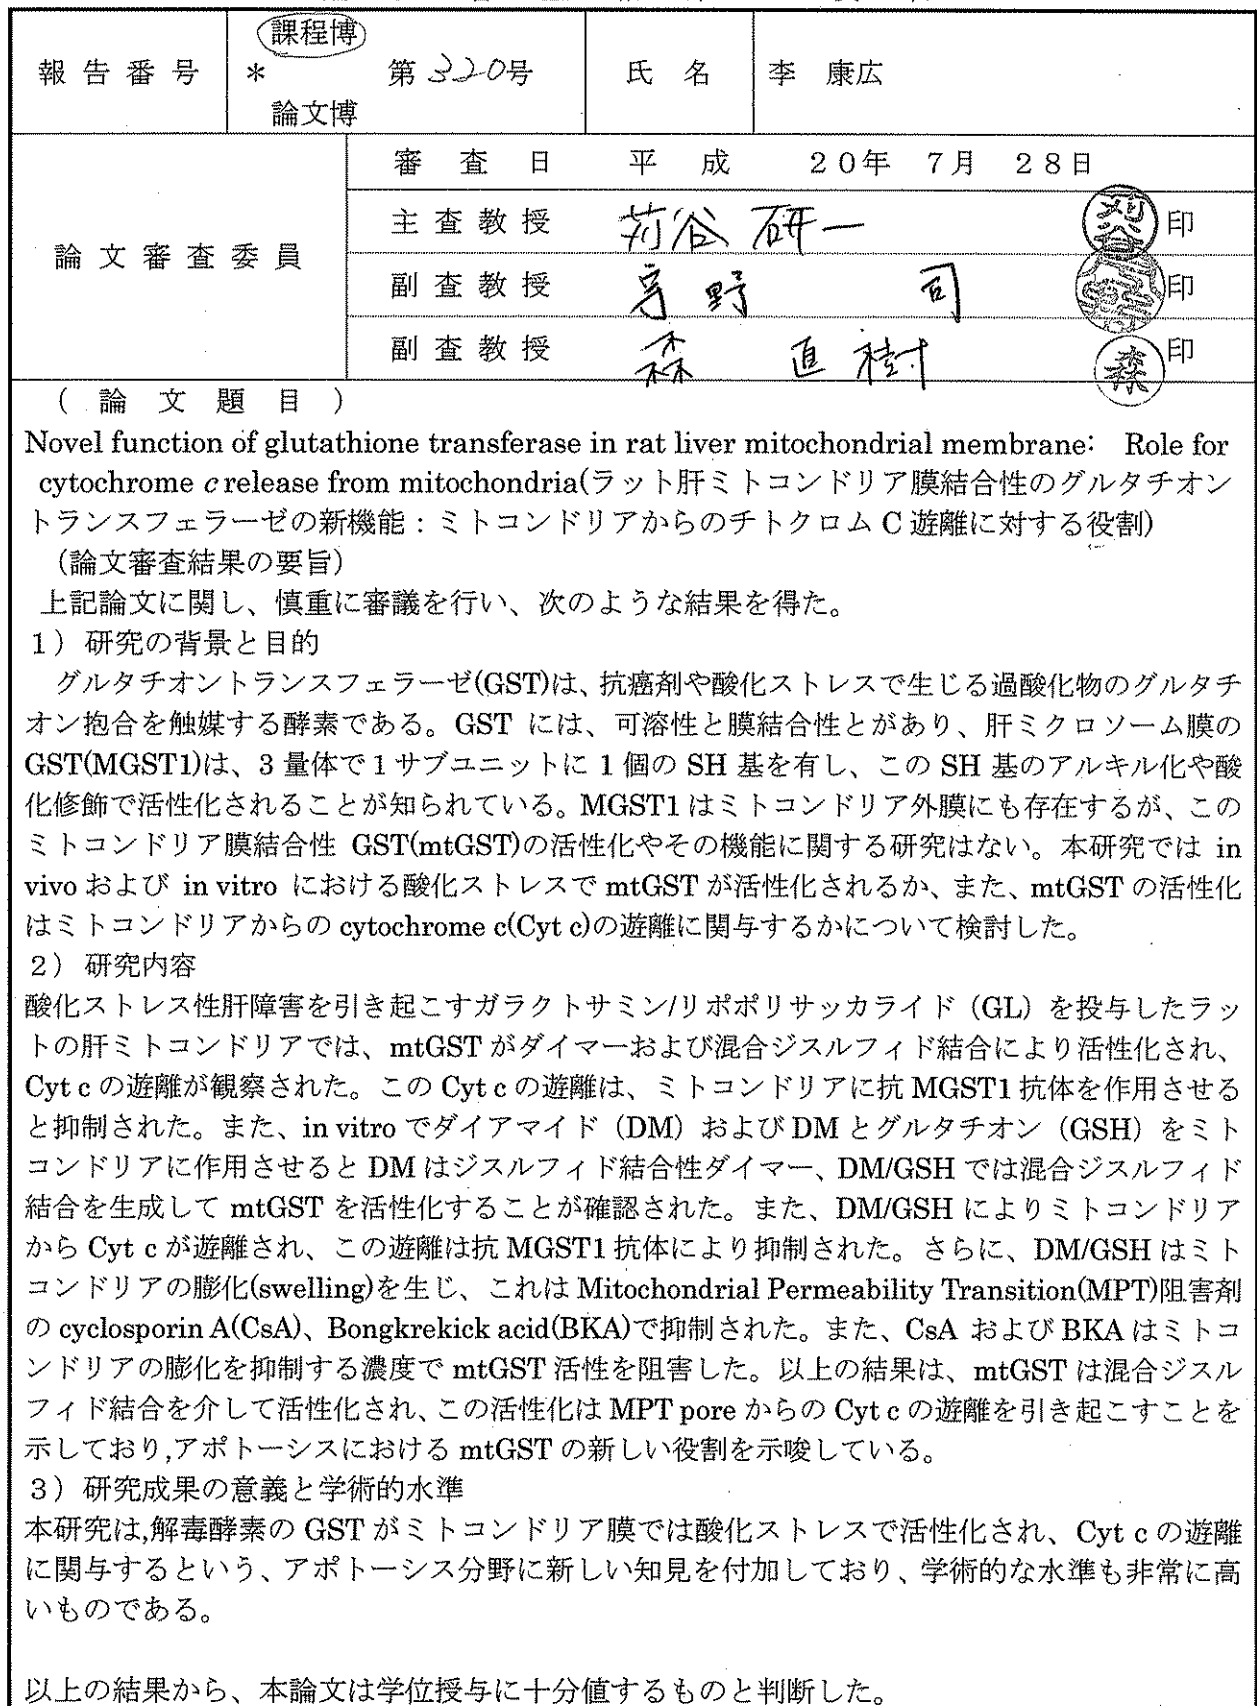 課程博
報告番号 * 第320号 氏名 李 康広
論文博
審査日 平成 20年 7月 28日
論文審査委員
主査教授 苅谷 研一 印
副査教授 野 司 印
副査教授 森 直樹 森 印
(論文題目)
Novel function of glutathione transferase in rat liver mitochondrial membrane: Role for
cytochrome c release from mitochondria(ラット肝ミトコンドリア膜結合性のグルタチオン
トランスフェラーゼの新機能:ミトコンドリアからのチトクロム C 遊離に対する役割)
(論文審査結果の要旨)
上記論文に関し、慎重に審議を行い、次のような結果を得た。
1)研究の背景と目的
グルタチオントランスフェラーゼ(GST)は、抗癌剤や酸化ストレスで生じる過酸化物のグルタチ
オン抱合を触媒する酵素である。GST には、可溶性と膜結合性とがあり、肝ミクロソーム膜の
GST(MGST1)は、3 量体で 1 サブユニットに 1 個の SH 基を有し、この SH 基のアルキル化や酸
化修飾で活性化されることが知られている。MGST1 はミトコンドリア外膜にも存在するが、この
ミトコンドリア膜結合性 GST(mtGST)の活性化やその機能に関する研究はない。本研究では in
vivo および in vitro における酸化ストレスで mtGST が活性化されるか、また、mtGST の活性化
はミトコンドリアからの cytochrome c(Cyt c)の遊離に関与するかについて検討した。
2)研究内容
酸化ストレス性肝障害を引き起こすガラクトサミン/リポポリサッカライド(GL)を投与したラッ
トの肝ミトコンドリアでは、mtGST がダイマーおよび混合ジスルフィド結合により活性化され、
Cyt c の遊離が観察された。この Cyt c の遊離は、ミトコンドリアに抗 MGST1 抗体を作用させる
と抑制された。また、in vitro でダイアマイド(DM)および DM とグルタチオン(GSH)をミト
コンドリアに作用させると DM はジスルフィド結合性ダイマー、DM/GSH では混合ジスルフィド
結合を生成して mtGST を活性化することが確認された。また、DM/GSH によりミトコンドリア
から Cyt c が遊離され、この遊離は抗 MGST1 抗体により抑制された。さらに、DM/GSH はミト
コンドリアの膨化(swelling)を生じ、これは Mitochondrial Permeability Transition(MPT)阻害剤
の cyclosporin A(CsA)、Bongkrekick acid(BKA)で抑制された。また、CsA および BKA はミトコ
ンドリアの膨化を抑制する濃度で mtGST 活性を阻害した。以上の結果は、mtGST は混合ジスル
フィド結合を介して活性化され、この活性化は MPT pore からの Cyt c の遊離を引き起こすことを
示しており,アポトーシスにおける mtGST の新しい役割を示唆している。
3)研究成果の意義と学術的水準
本研究は,解毒酵素の GST がミトコンドリア膜では酸化ストレスで活性化され、Cyt c の遊離
に関与するという、アポトーシス分野に新しい知見を付加しており、学術的な水準も非常に高
いものである。
以上の結果から、本論文は学位授与に十分値するものと判断した。